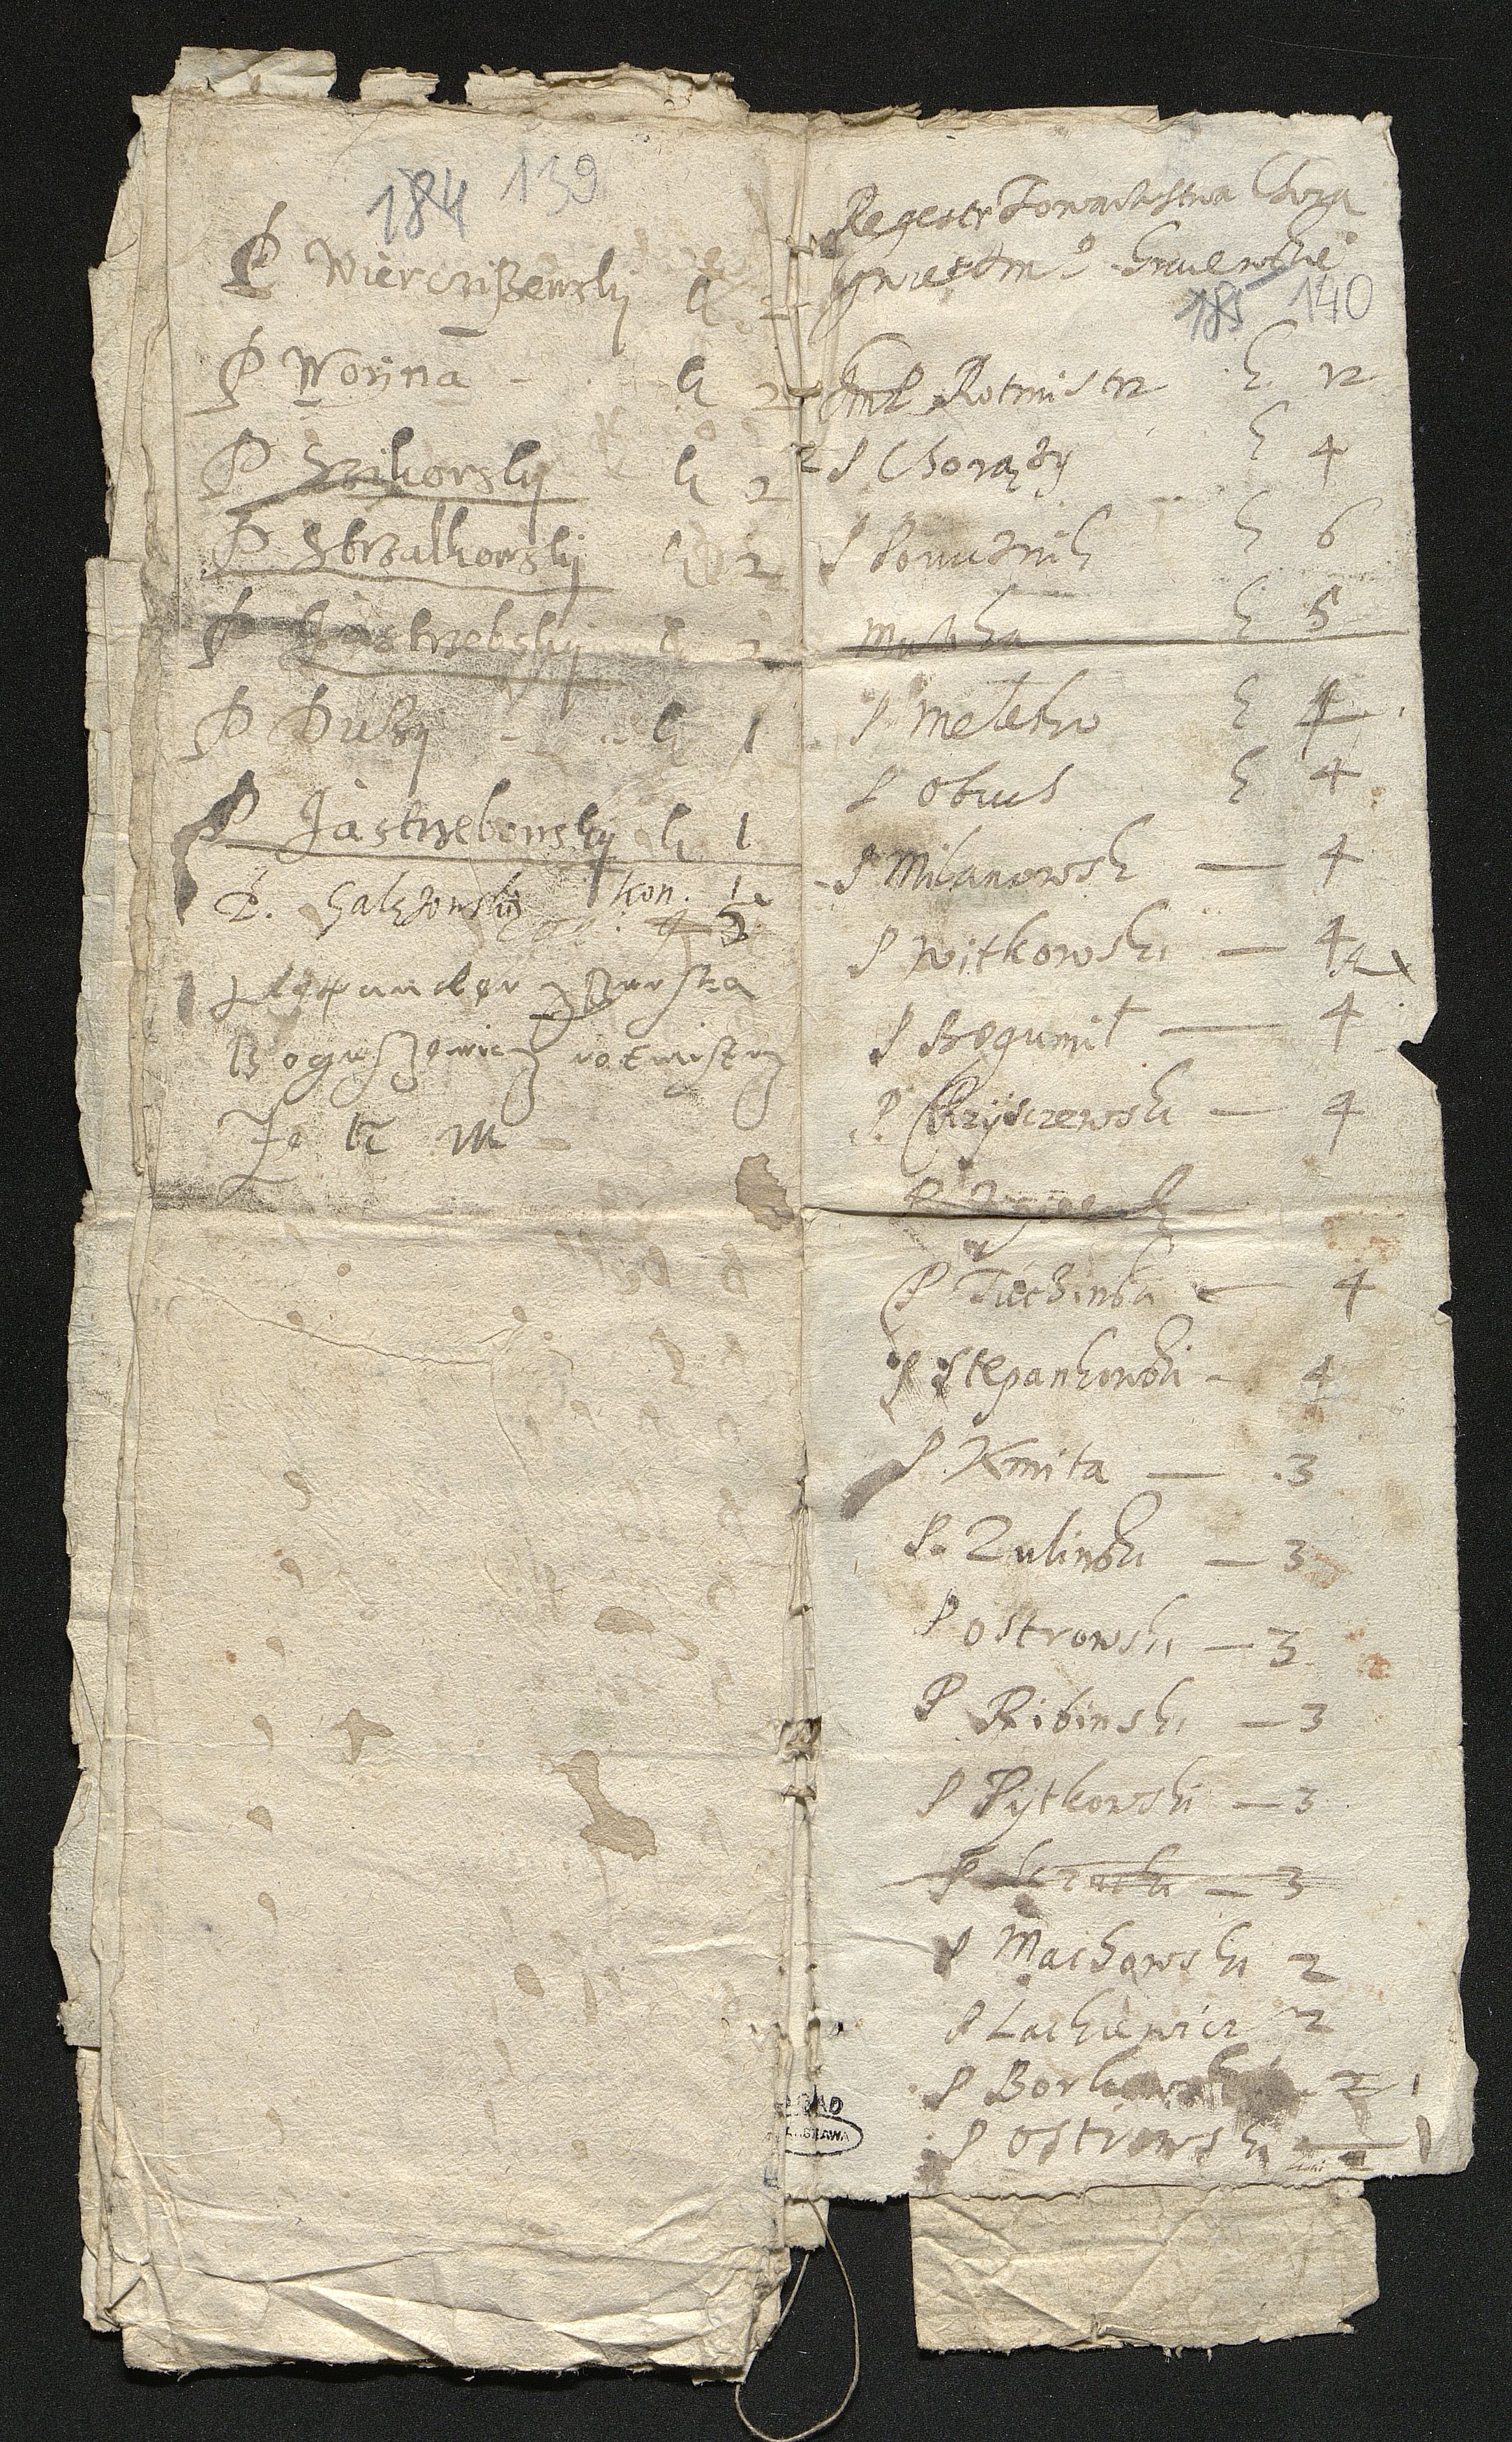 184 139
P Wierczißewsky k 2
P Worina - k 2
P Szikorsky k 2
P Strzalkowsky k 2
P Jastrzebsky k 2
P Dußy - k 1
P Jastrzebowsky k 1
P. Galęzowski kon. 1
Alexander
Boguszewicz rotmistrz
Je k m
Regestr Towarzistwa Chorą
185 140
Jmć Rotmistrz k 12
P Chorązy k 4
P Porucznik k 6
k 5
P Meletko k 4
P Obuch k 4
P Milanowsk — 4
P Witkowski — 4
P Bogumił — 4
P. Chrzÿsczewski — 4
P — 4
P Stepankowski - 4
P. Kmita — 3
P. Zulinski — 3
P Ostrowski — 3
P Ribinski — 3
P Pÿtkowski — 3
P — 3
P Machowski 2
P Lackiewicz 2
P Borkowski 2 1
P Ostrowski — 1
AGAD
WARSZAWA